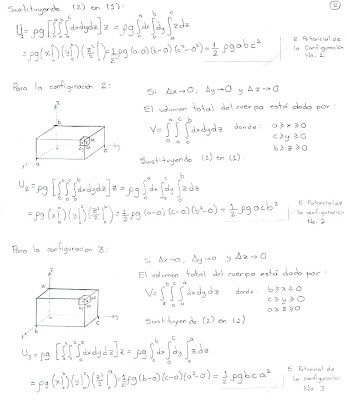 Sustituyendo (2) en (1):
②
U₁ = ρg [∫₀ᵃ∫₀ᵇ∫₀ᶜ dxdydz] z = ρg ∫₀ᵃ dx ∫₀ᵇ dy ∫₀ᶜ z dz
= ρg (x|₀ᵃ)(y|₀ᵇ)(z²/2|₀ᶜ) = 1/2 ρg (a-0)(b-0)(c²-0²) = 1/2 ρg a b c²
E. Potencial de
la Configuración
No. 1
Para la configuración 2:
Si Δx→0, Δy→0 y Δz→0
El volumen total del cuerpo está dado por:
V = ∫₀ᵃ∫₀ᶜ∫₀ᵇ dxdydz donde: a ≥ x ≥ 0
c ≥ y ≥ 0
b ≥ z ≥ 0
Sustituyendo (2) en (1)
U₂ = ρg [∫₀ᵃ∫₀ᶜ∫₀ᵇ dxdydz] z = ρg ∫₀ᵃ dx ∫₀ᶜ dy ∫₀ᵇ z dz
= ρg (x|₀ᵃ)(y|₀ᶜ)(z²/2|₀ᵇ) = 1/2 ρg (a-0)(c-0)(b²-0) = 1/2 ρg a c b²
E. Potencial de
la configuración
No. 2
Para la configuracion 3:
Si Δx→0, Δy→0 y Δz→0
El volumen total del cuerpo está dado por:
V = ∫₀ᵇ∫₀ᶜ∫₀ᵃ dxdydz donde: b ≥ x ≥ 0
c ≥ y ≥ 0
a ≥ z ≥ 0
Sustituyendo (2) en (1)
U₃ = ρg [∫₀ᵇ∫₀ᶜ∫₀ᵃ dxdydz] z = ρg ∫₀ᵇ dx ∫₀ᶜ dy ∫₀ᵃ z dz
= ρg (x|₀ᵇ)(y|₀ᶜ)(z²/2|₀ᵃ) = 1/2 ρg (b-0)(c-0)(a²-0) = 1/2 ρg b c a²
E. Potencial de
la configuracion
No. 3